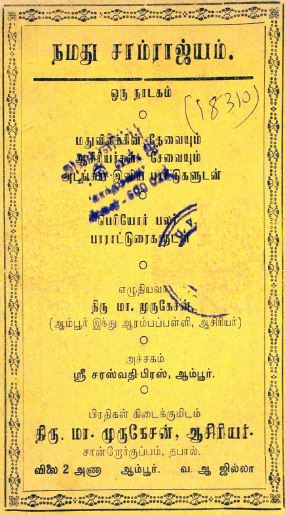 நமது சாம்ராஜ்யம்.
ஒரு நாடகம்
(18310)
மதுவிலக்கின் தேவையும்
ஆசிரியர்கள் சேவையும்
அடங்கிய இனிய பாட்டுகளுடன்
பெரியோர் பலர்
பாராட்டுரைகளுடன்
எழுதியவர்
திரு மா. முருகேசன்,
(ஆம்பூர் இந்து ஆரம்பப்பள்ளி, ஆசிரியர்)
அச்சகம்
ஸ்ரீ சரஸ்வதி பிரஸ், ஆம்பூர்.
பிரதிகள் கிடைக்குமிடம்
திரு. மா. முருகேசன், ஆசிரியர்.
சான்றோர்குப்பம், தபால்.
விலை 2 அணா ஆம்பூர். வ. ஆ ஜில்லா